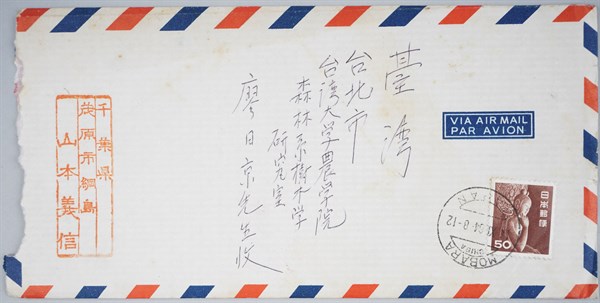 臺灣
台北市
台湾大学農学院
森林系樹木学
研究室
廖日京先生收
VIA AIR MAIL
PAR AVION
日本郵便
50
MOBARA
JAPAN
千葉県
茂原市綱島
山本義信